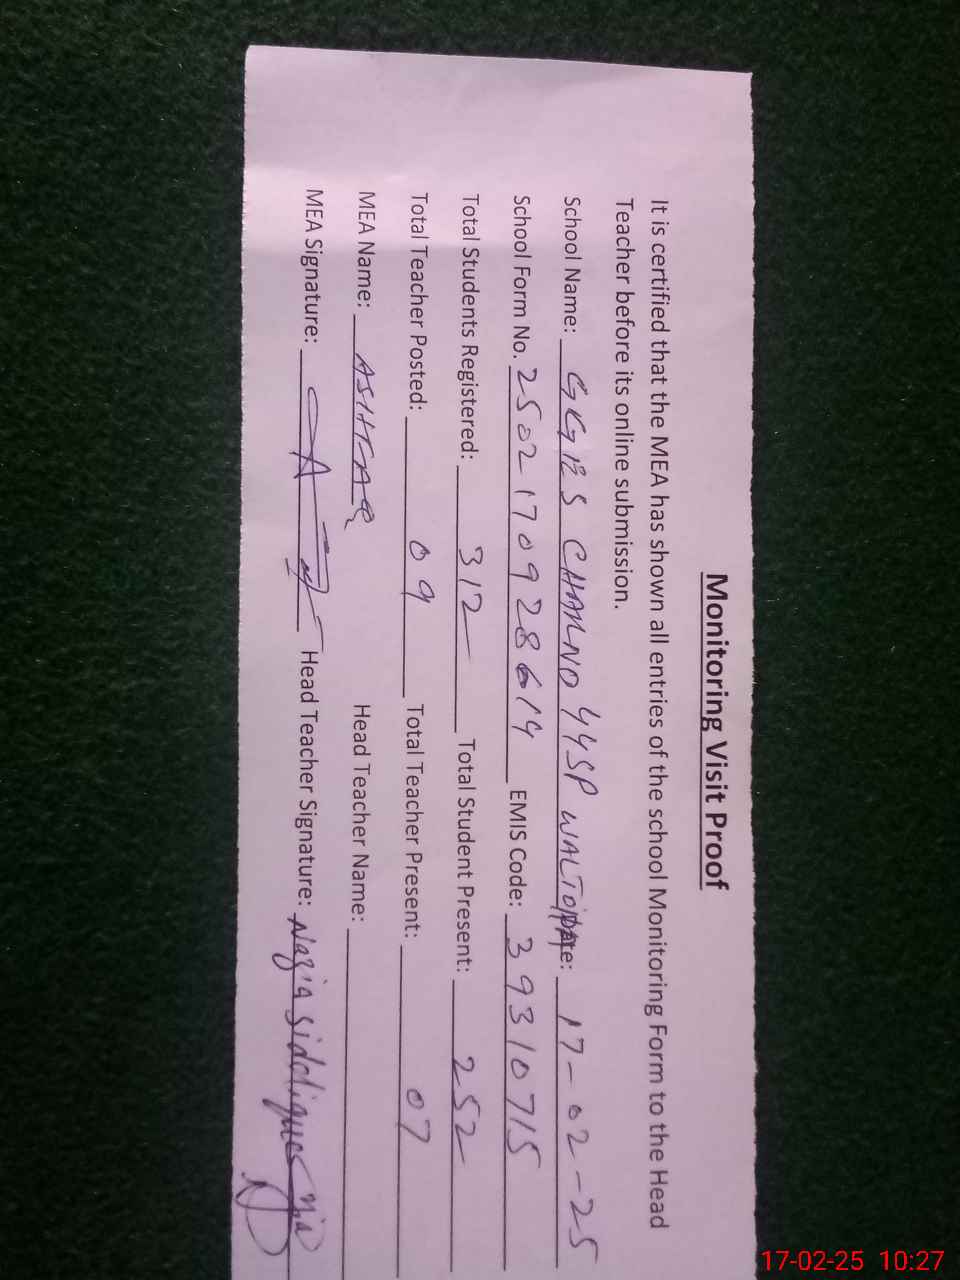 Monitoring Visit Proof
It is certified that the MEA has shown all entries of the school Monitoring Form to the Head
Teacher before its online submission.
School Name: GGES CHAK NO 44SP WALTOHA Date: 17-02-25
School Form No. 25021709286 14 EMIS Code: 39310715
Total Students Registered: 312 Total Student Present: 252
Total Teacher Posted: 09 Total Teacher Present: 07
MEA Name: ASHFAQ Head Teacher Name:
MEA Signature: Head Teacher Signature: Nazia Siddique
17-02-25 10:27